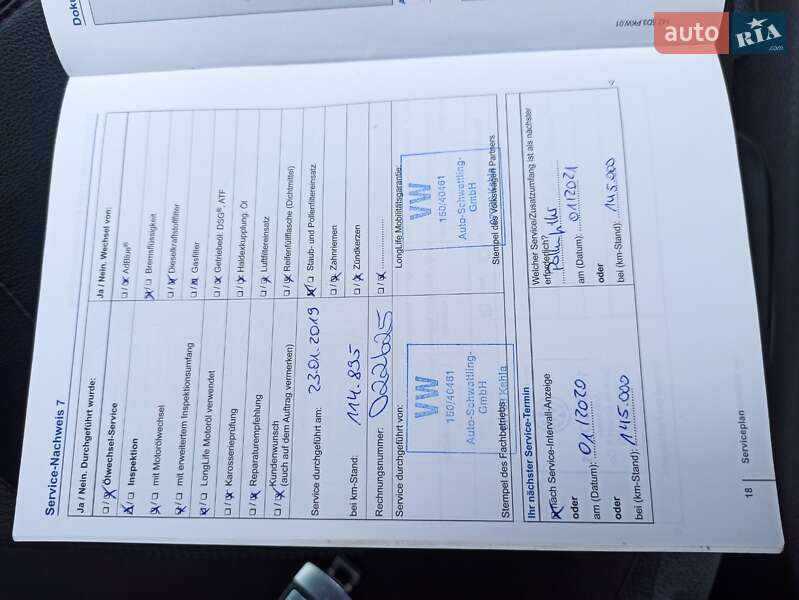 auto RIA.com
Doku
Service-Nachweis 7
Ja / Nein. Durchgeführt wurde:
☐ / ☒ Ölwechsel-Service
☒ / ☐ Inspektion
☒ / ☐ mit Motorölwechsel
☒ / ☐ mit erweitertem Inspektionsumfang
☒ / ☐ LongLife Motoröl verwendet
☐ / ☒ Karosserieprüfung
☐ / ☒ Reparaturempfehlung
☐ / ☒ Kundenwunsch
(auch auf dem Auftrag vermerken)
Service durchgeführt am: 23.01.2019
bei km-Stand: 114.895
Rechnungsnummer: 0222625
Service durchgeführt von:
VW
150/40461
Auto-Schwettling-
GmbH
Kahla
Stempel des Fachbetriebs
Ja / Nein. Wechsel von:
☐ / ☒ AdBlue®
☒ / ☐ Bremsflüssigkeit
☐ / ☒ Dieselkraftstofffilter
☐ / ☒ Gasfilter
☐ / ☒ Getriebeöl: DSG®, ATF
☐ / ☒ Haldexkupplung: Öl
☐ / ☒ Luftfiltereinsatz
☐ / ☒ Reifenfüllflasche (Dichtmittel)
☒ / ☐ Staub- und Pollenfiltereinsatz
☐ / ☒ Zahnriemen
☐ / ☒ Zündkerzen
☐ / ☒ ....................
LongLife Mobilitätsgarantie:
VW
150/40461
Auto-Schwettling-
GmbH
Kahla
Stempel des Volkswagen Partners
Ihr nächster Service-Termin
☒ nach Service-Intervall-Anzeige
oder
am (Datum): 01/2020
oder
bei (km-Stand): 145.000
Welcher Service/Zusatzumfang ist als nächster
erforderlich?
am (Datum): 01/2021
oder
bei (km-Stand): 145.000
18 Serviceplan